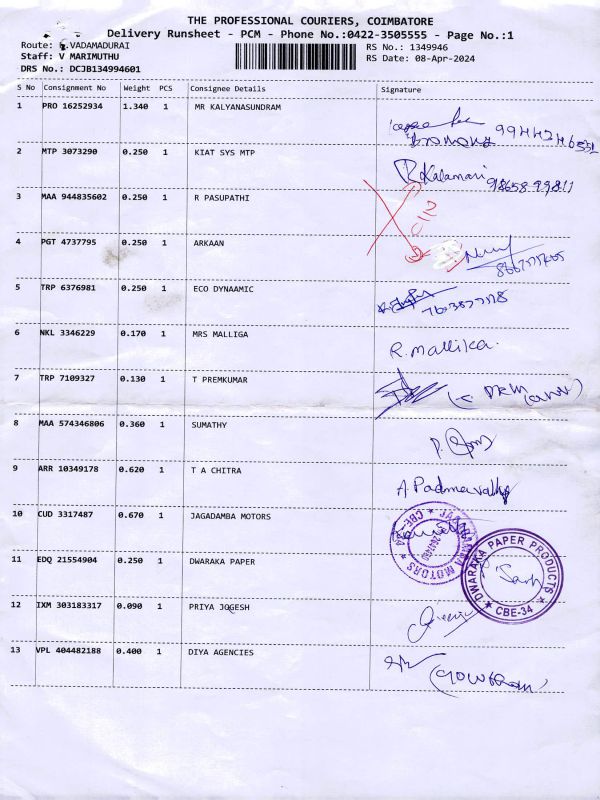 THE PROFESSIONAL COURIERS, COIMBATORE
Delivery Runsheet - PCM - Phone No.:0422-3505555 - Page No.:1
Route: G.VADAMADURAI
RS No.: 1349946
Staff: V MARIMUTHU
RS Date: 08-Apr-2024
DRS No.: DCJB134994601
S No Consignment No Weight PCS Consignee Details Signature
1 PRO 16252934 1.340 1 MR KALYANASUNDRAM
2 MTP 3073290 0.250 1 KIAT SYS MTP
R Kalamani
3 MAA 944835602 0.250 1 R PASUPATHI
4 PGT 4737795 0.250 1 ARKAAN
5 TRP 6376981 0.250 1 ECO DYNAAMIC
6 NKL 3346229 0.170 1 MRS MALLIGA
R. Mallika.
7 TRP 7109327 0.130 1 T PREMKUMAR
8 MAA 574346806 0.360 1 SUMATHY
9 ARR 10349178 0.620 1 T A CHITRA
A. Padmavathy
10 CUD 3317487 0.670 1 JAGADAMBA MOTORS
MOTORS * CBE-34 *
11 EDQ 21554904 0.250 1 DWARAKA PAPER
DWARAKA PAPER PRODUCTS
* CBE-34 *
12 IXM 303183317 0.090 1 PRIYA JOGESH
13 VPL 404482188 0.400 1 DIYA AGENCIES